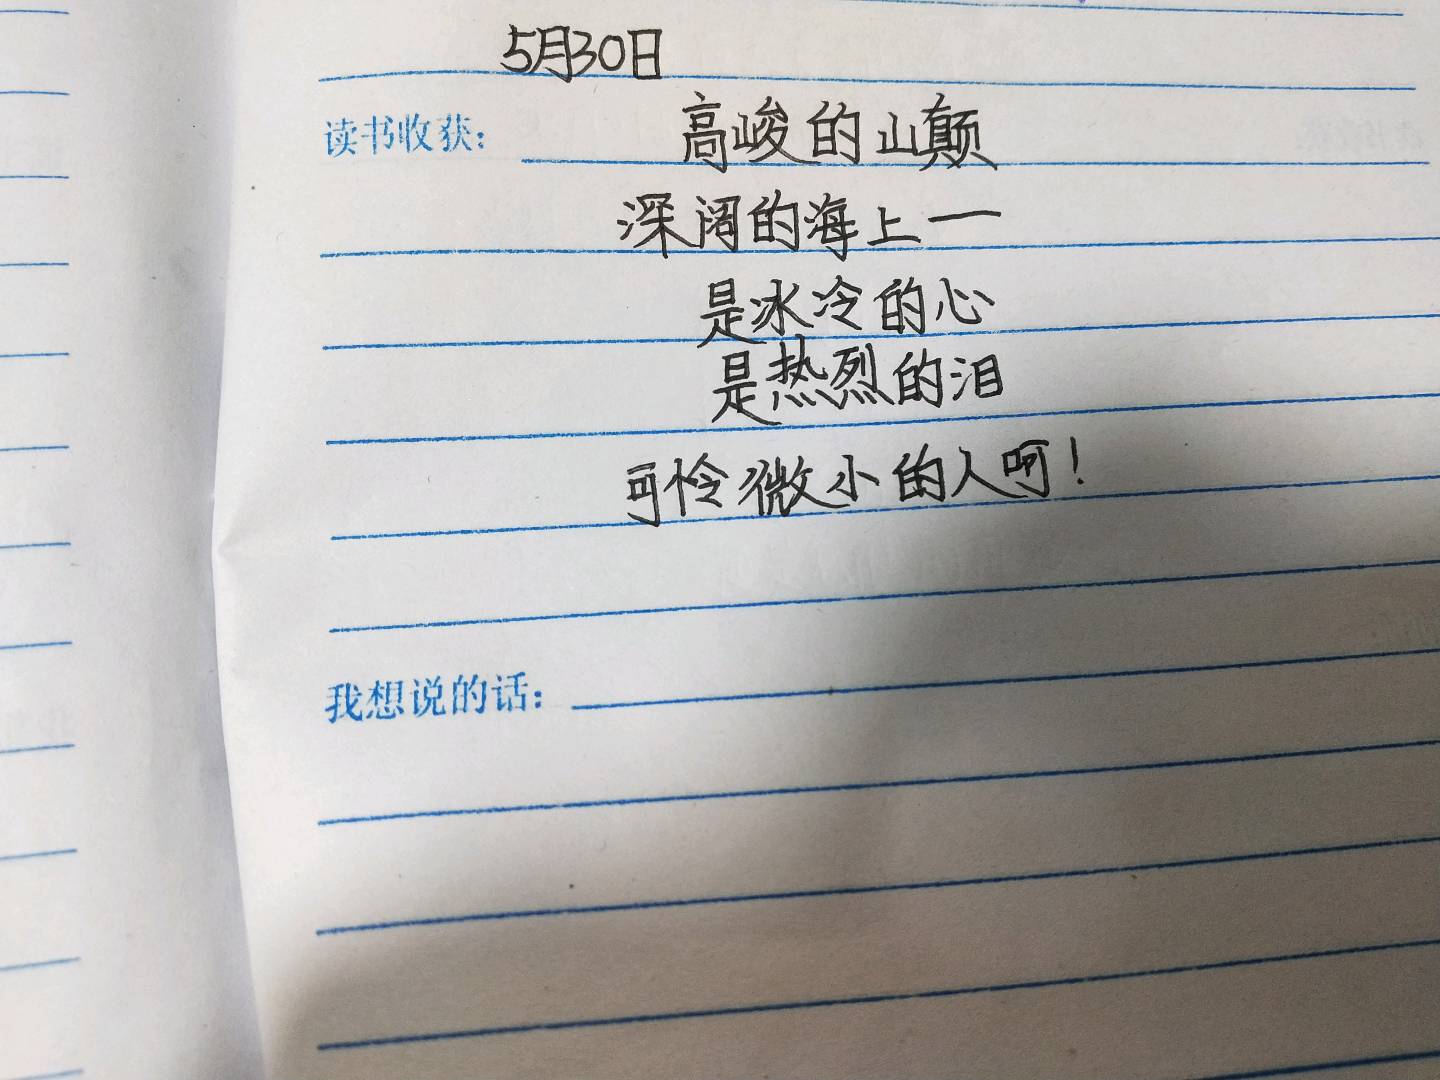 5月30日
读书收获： 高峻的山颠
深阔的海上一
是冰冷的心
是热烈的泪
可怜微小的人呵！
我想说的话：